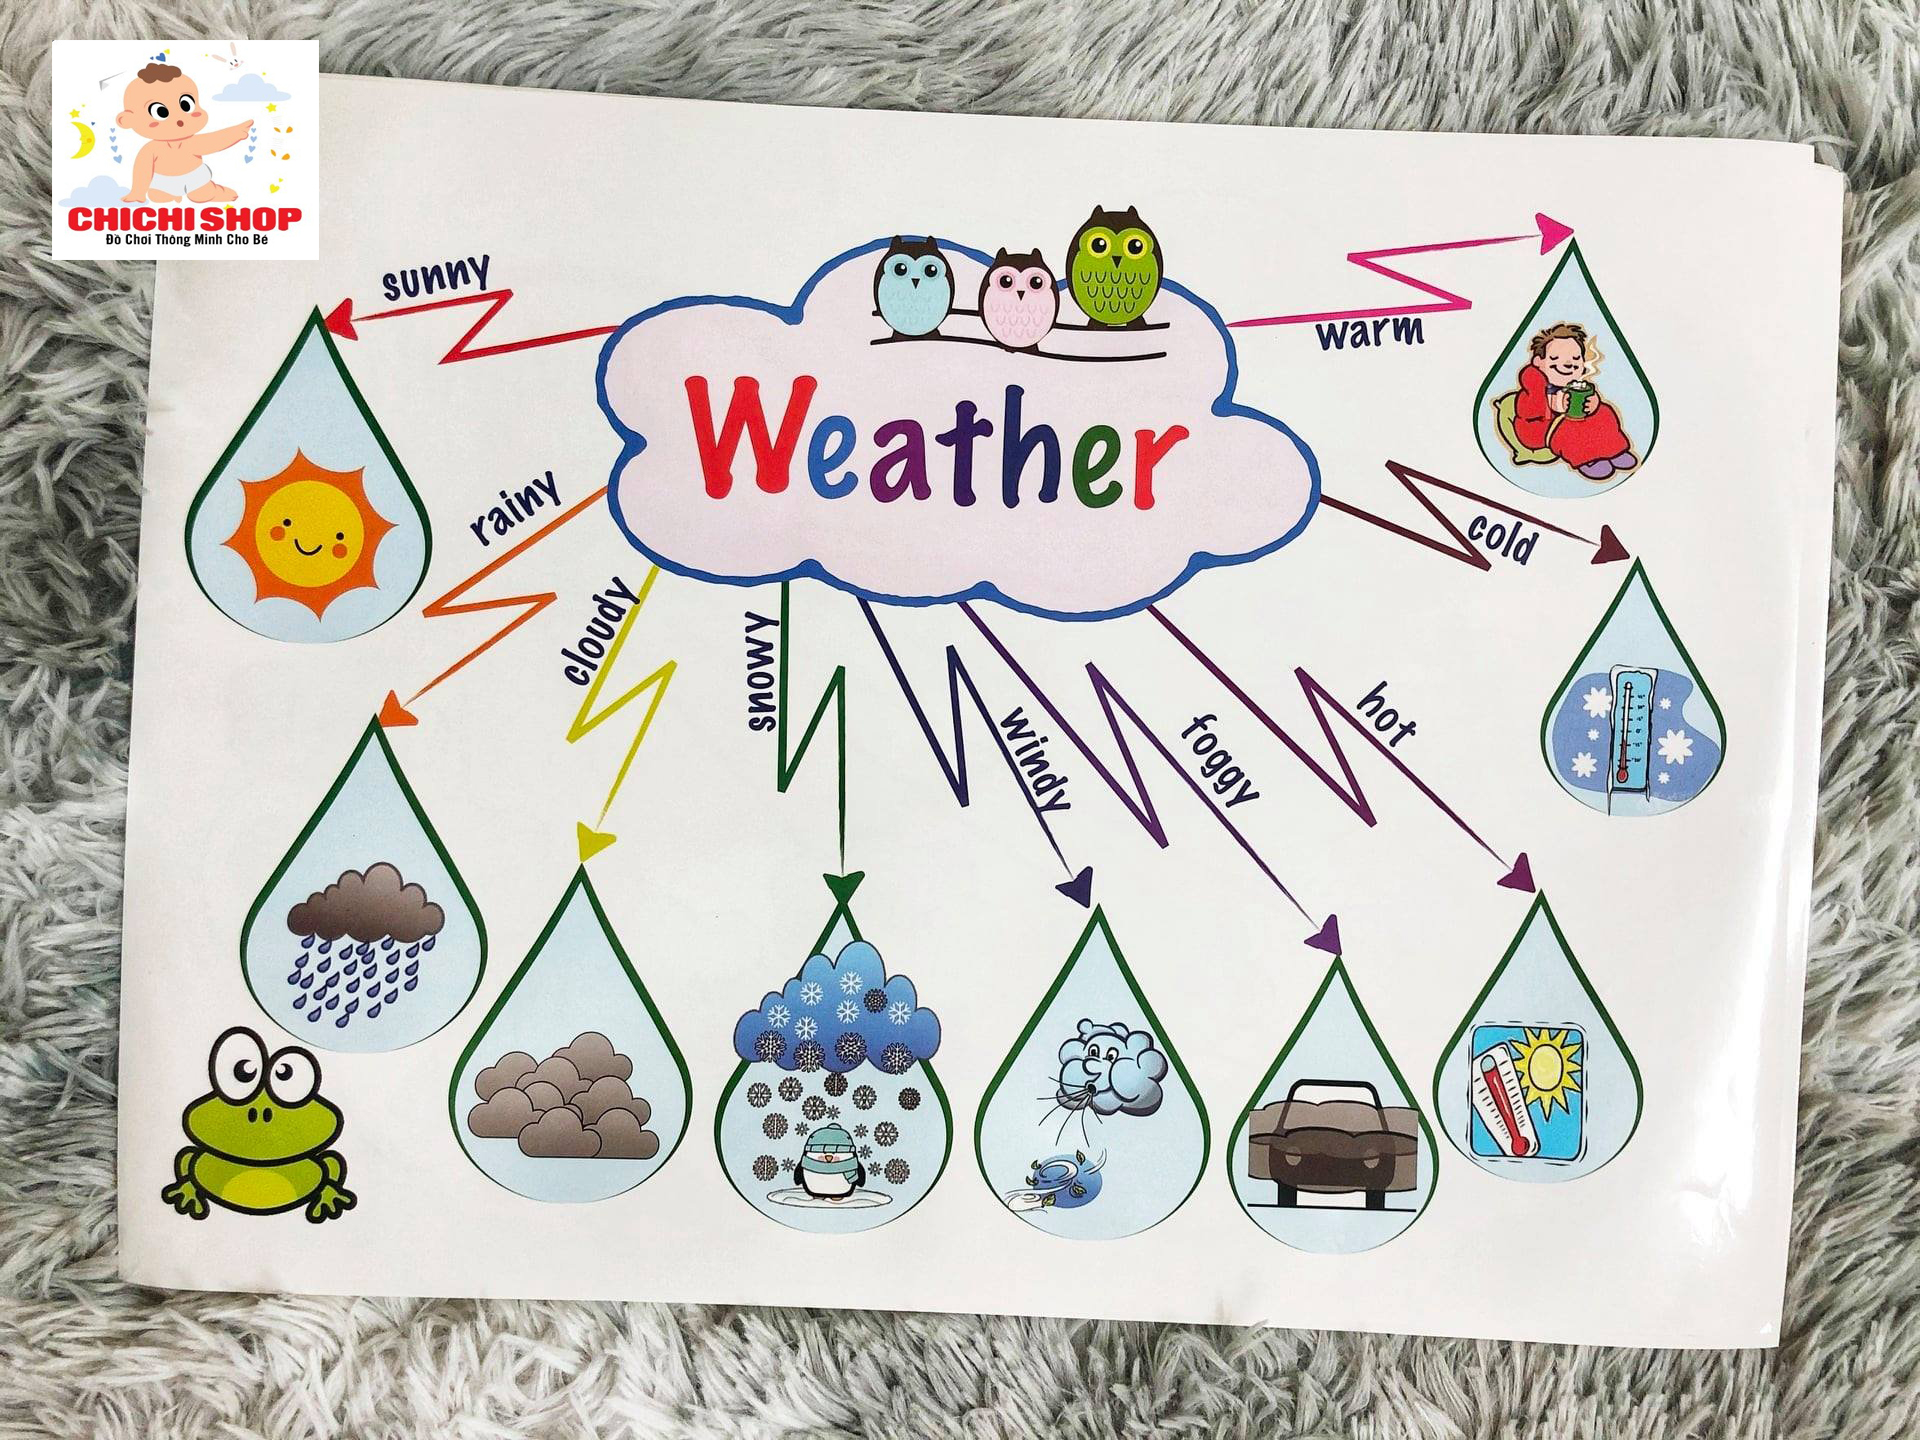 CHICHI SHOP
Đồ Chơi Thông Minh Cho Bé
Weather
sunny
rainy
cloudy
snowy
windy
foggy
hot
cold
warm